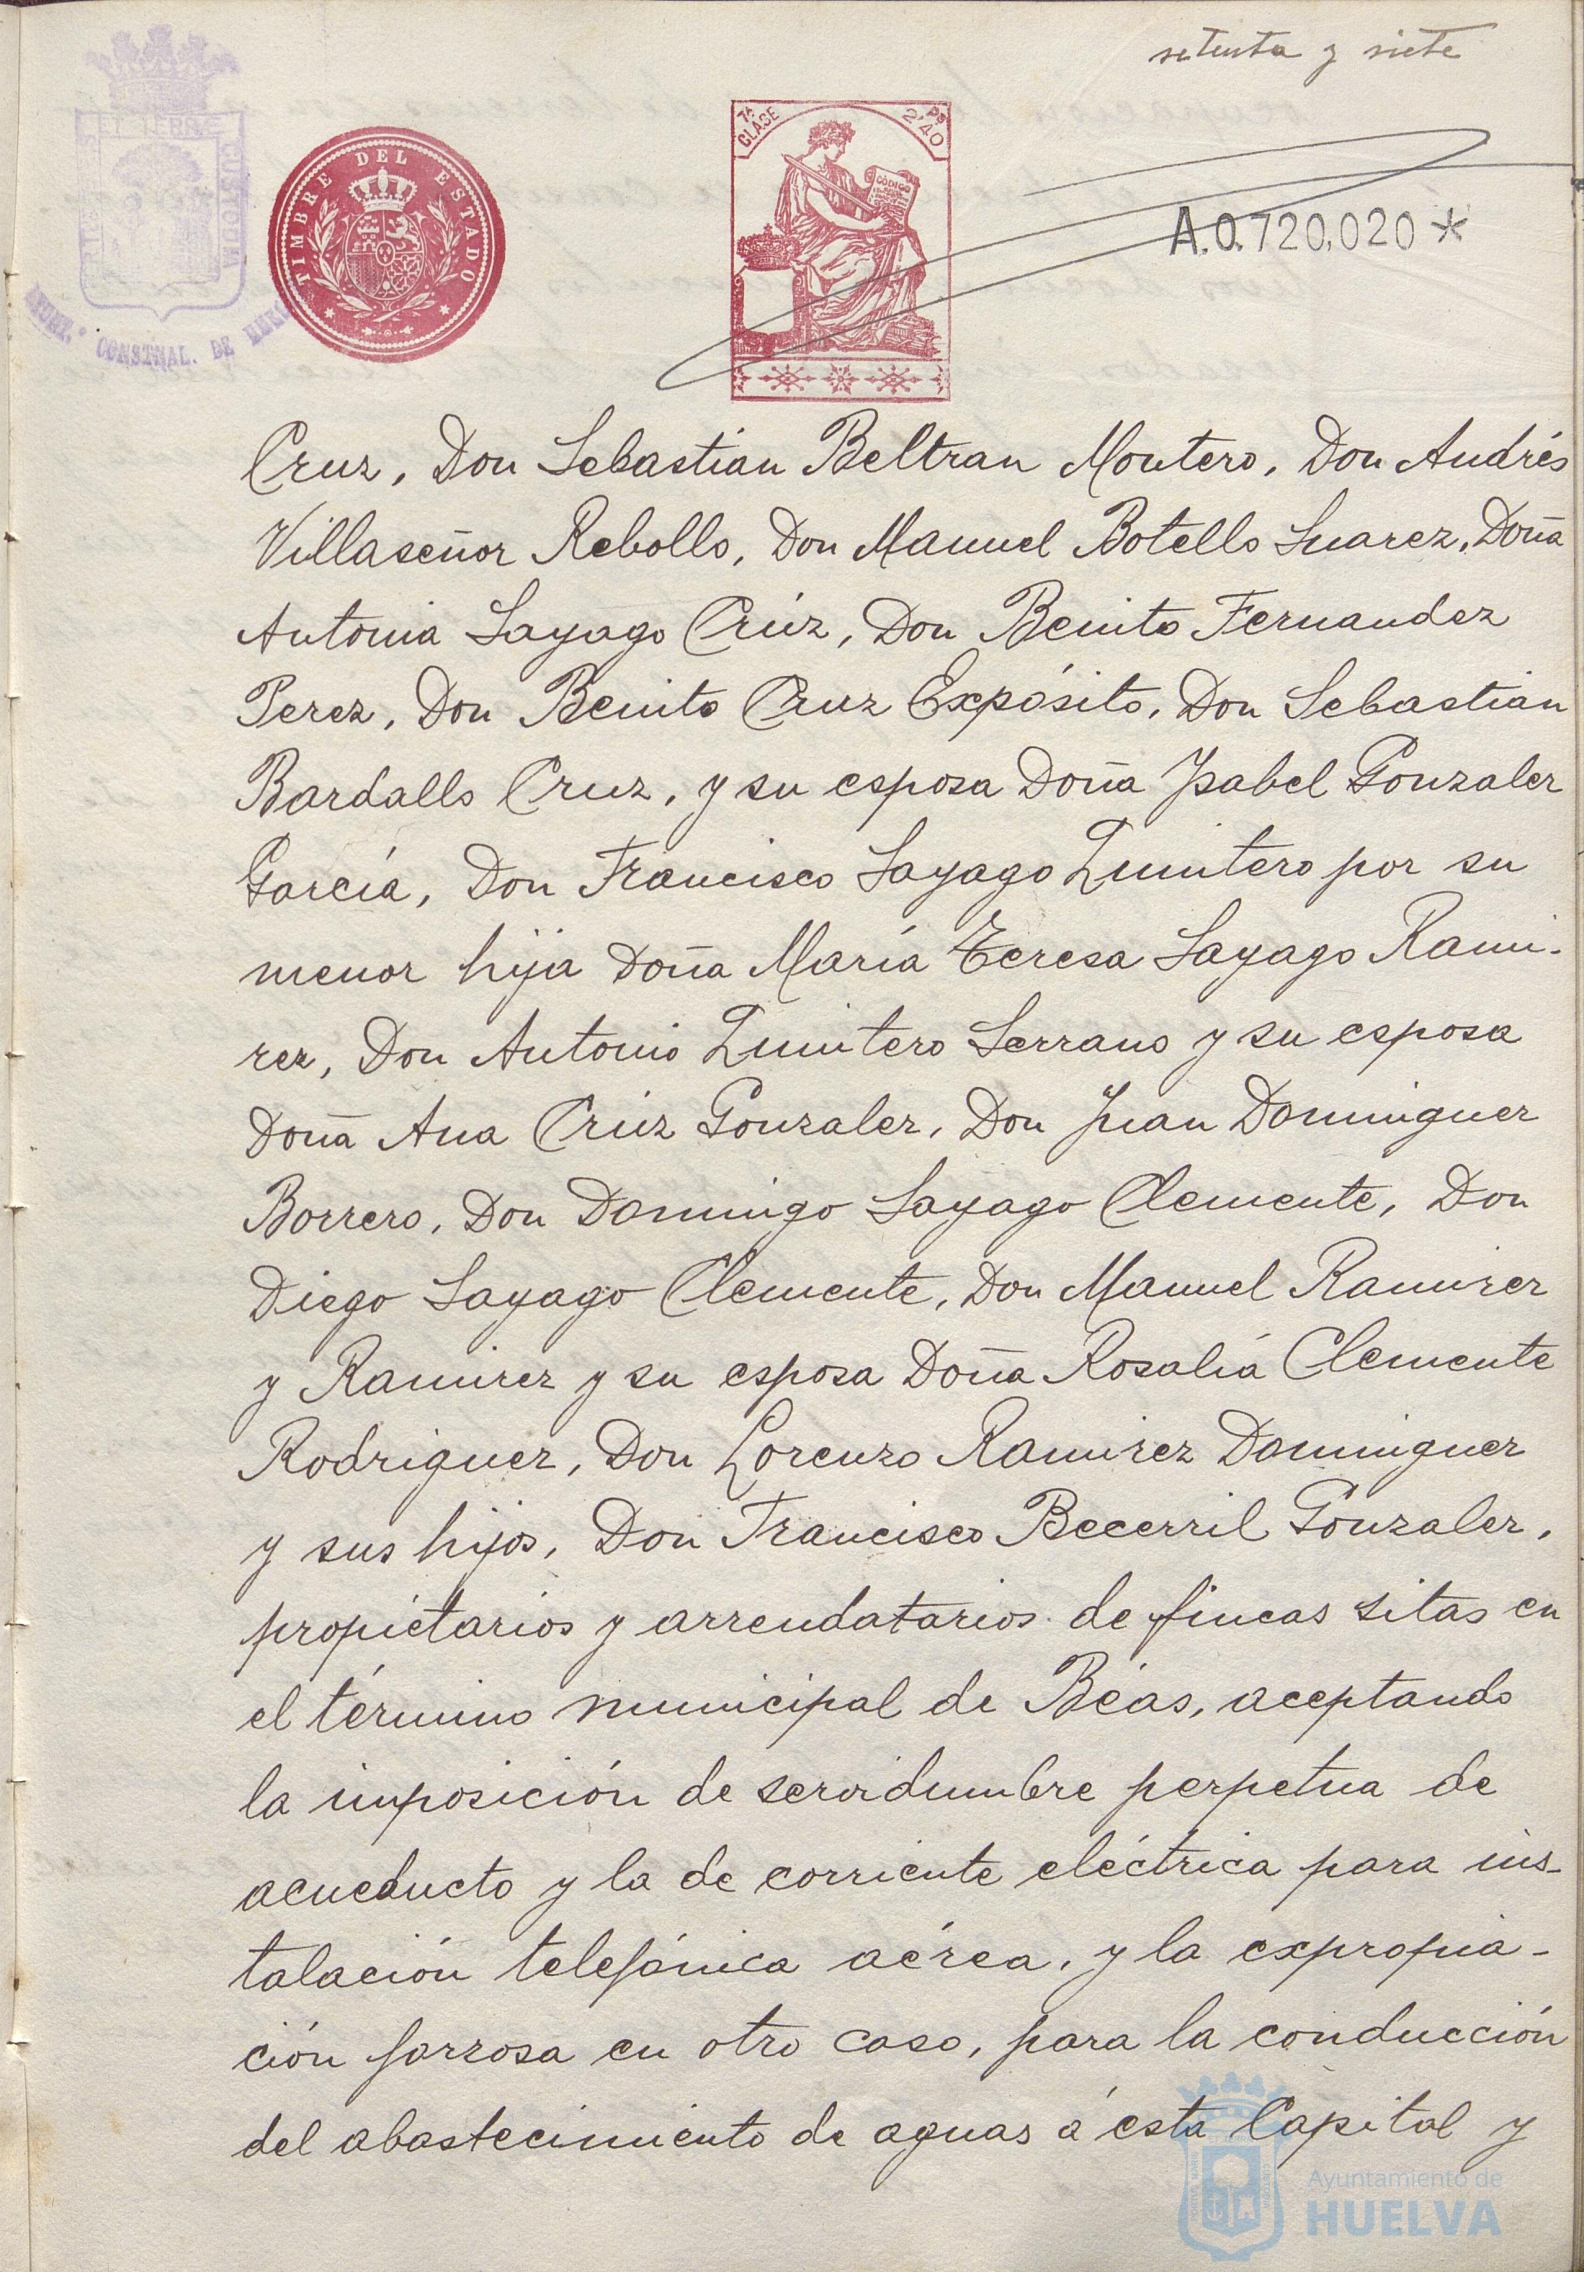 setenta y siete
7ª CLASE
Pª 2'40
TIMBRE DEL ESTADO
CÓDIGO
A.0.720,020*
CONSTNAL. DE
Cruz, Don Sebastián Beltran Montero, Don Andrés
Villaseñor Rebollo, Don Manuel Botello Suarez, Doña
Antonia Sayago Crúz, Don Benito Fernandez
Perez, Don Benito Cruz Expósito, Don Sebastián
Bardallo Cruz, y su esposa Doña Ysabel Gonzalez
García, Don Francisco Sayago Quintero por su
menor hija Doña María Teresa Sayago Rami-
rez, Don Antonio Quintero Serrano y su esposa
Doña Ana Crúz Gonzalez, Don Juan Dominguez
Borrero, Don Domingo Sayago Clemente, Don
Diego Sayago Clemente, Don Manuel Ramirez
y Ramirez y su esposa Doña Rosalía Clemente
Rodriguez, Don Lorenzo Ramirez Dominguez
y sus hijos, Don Francisco Becerril Gonzalez,
propietarios y arrendatarios de fincas sitas en
el término municipal de Béas, aceptando
la imposición de servidumbre perpetua de
acueducto y la de corriente eléctrica para ins-
talación telefónica aérea, y la expropia-
ción forzosa en otro caso, para la conducción
del abastecimiento de aguas á ésta Capital y
Ayuntamiento de
HUELVA